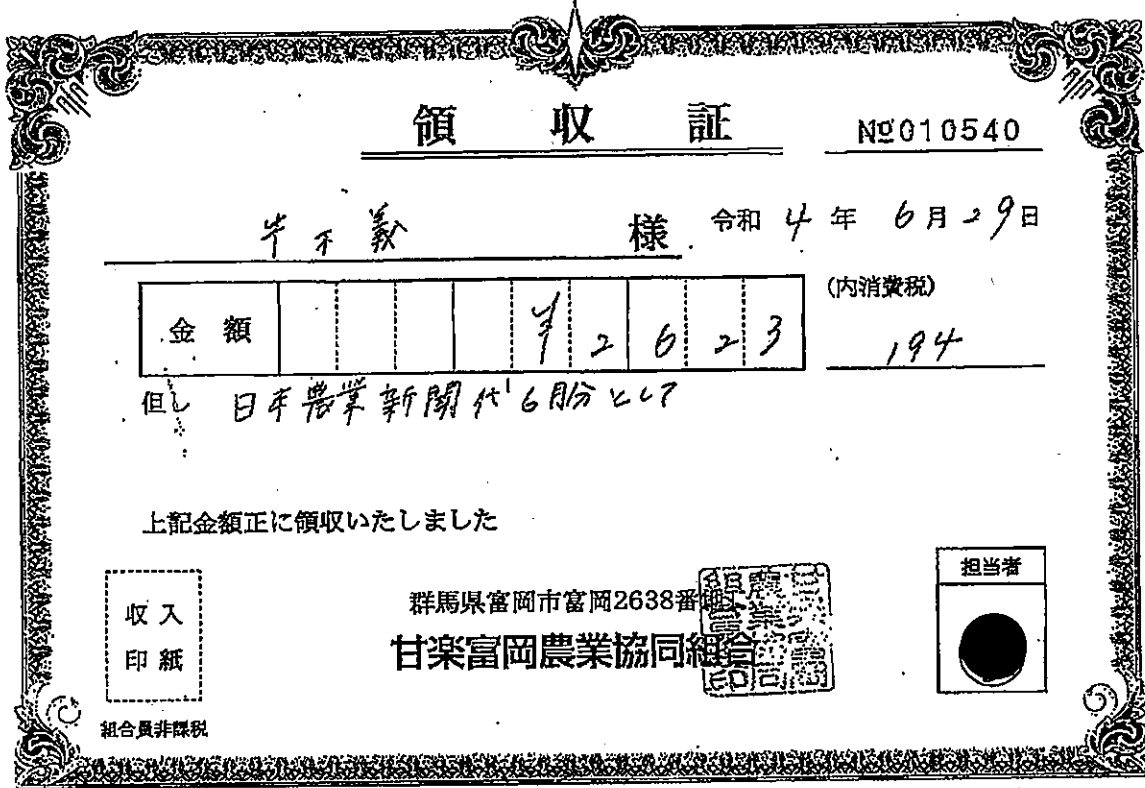 領収証
№010540
井下 義 様
令和 4 年 6 月 29 日
金額 ¥2623
(内消費税)
194
但し 日本農業新聞代 6月分として
上記金額正に領収いたしました
収入
印紙
組合員非課税
群馬県富岡市富岡2638番地
甘楽富岡農業協同組合
担当者